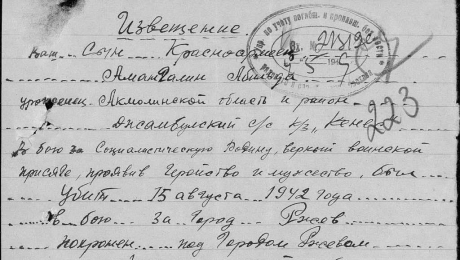 Извещение
Ваш Сын Красноармеец
Амангалин Абильда
уроженец Акмолинской области и район
Джамбулский с/с к/з „Кенес
В бою за Социалистическую Родину, верный воинской
присяге, проявив геройство и мужество, был
Убит 15 августа 1942 года
в бою за Город Ржев
похоронен под Городом Ржевом
223